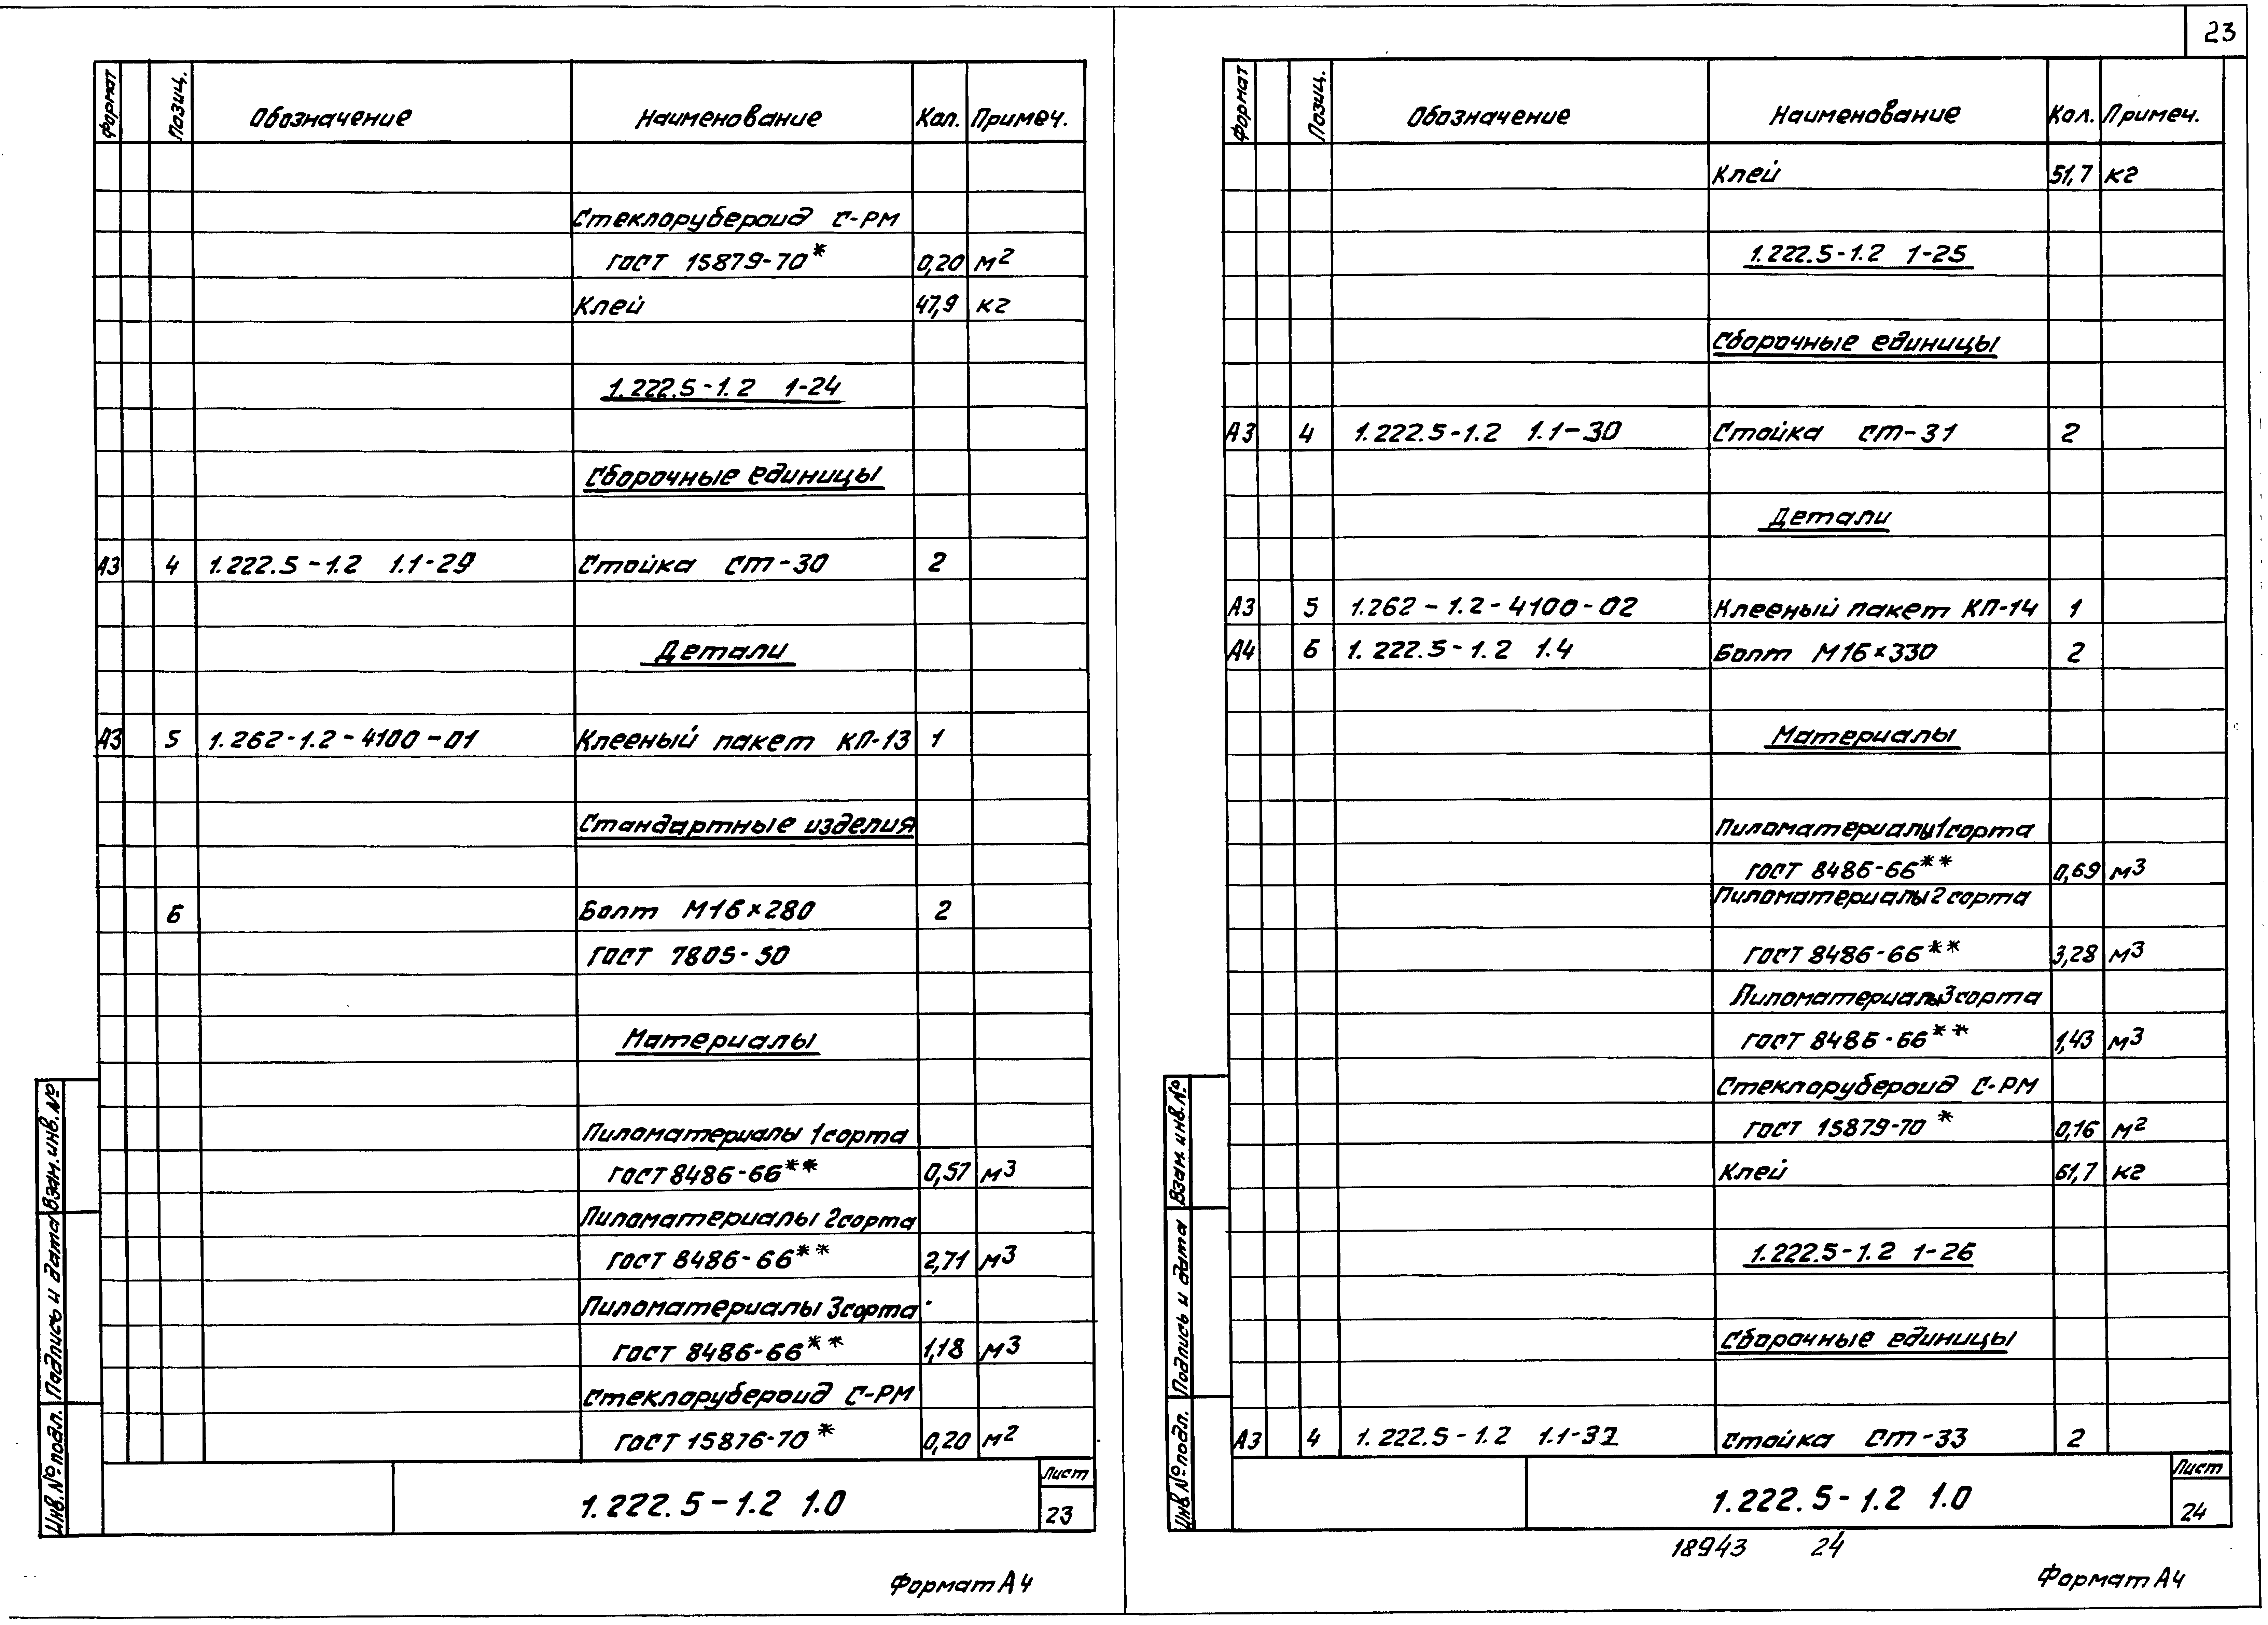 23
Формат Позиц. Обозначение Наименование Кол. Примеч.
Стеклорубероид С-РМ
ГОСТ 15879-70* 0,20 м2
Клей 47,9 кг
1.222.5-1.2 1-24
Сборочные единицы
А3 4 1.222.5-1.2 1.1-29 Стойка СТ-30 2
Детали
А3 5 1.262-1.2-4100-01 Клееный пакет КП-13 1
Стандартные изделия
6 Болт М16×280 2
ГОСТ 7805-50
Материалы
Пиломатериалы 1 сорта
ГОСТ 8486-66** 0,57 м3
Пиломатериалы 2 сорта
ГОСТ 8486-66** 2,71 м3
Пиломатериалы 3 сорта
ГОСТ 8486-66** 1,18 м3
Стеклорубероид С-РМ
ГОСТ 15876-70* 0,20 м2
Инв. № подл. Подпись и дата Взам. инв. №
1.222.5-1.2 1.0
Лист
23
Формат А4
Формат Позиц. Обозначение Наименование Кол. Примеч.
Клей 51,7 кг
1.222.5-1.2 1-25
Сборочные единицы
А3 4 1.222.5-1.2 1.1-30 Стойка СТ-31 2
Детали
А3 5 1.262-1.2-4100-02 Клееный пакет КП-14 1
А4 6 1.222.5-1.2 1.4 Болт М16×330 2
Материалы
Пиломатериалы 1 сорта
ГОСТ 8486-66** 0,69 м3
Пиломатериалы 2 сорта
ГОСТ 8486-66** 3,28 м3
Пиломатериалы 3 сорта
ГОСТ 8486-66** 1,43 м3
Стеклорубероид С-РМ
ГОСТ 15879-70* 0,16 м2
Клей 61,7 кг
1.222.5-1.2 1-26
Сборочные единицы
А3 4 1.222.5-1.2 1.1-32 Стойка СТ-33 2
Инв. № подл. Подпись и дата Взам. инв. №
1.222.5-1.2 1.0
Лист
24
18943 24
Формат А4